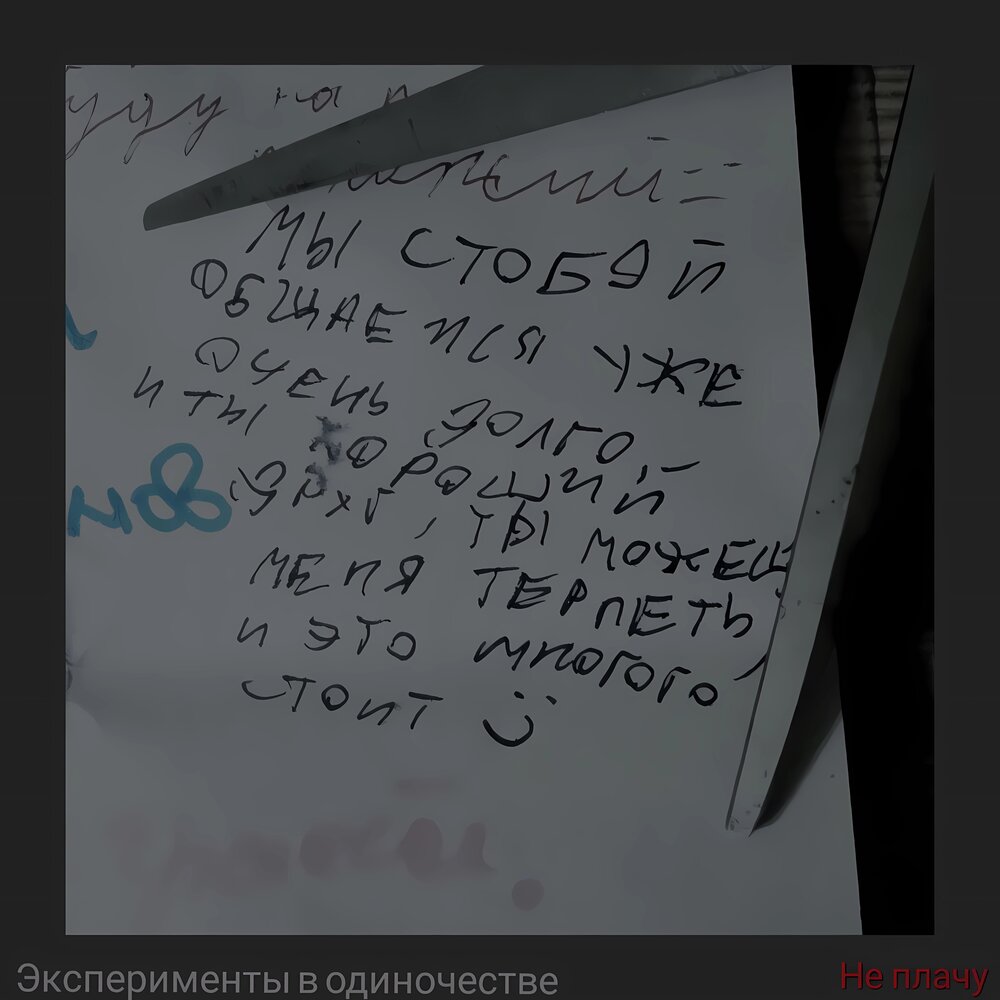 МЫ СТОБОЙ
ОБЩАЕМСЯ УЖЕ
ОЧЕНЬ ДОЛГО,
И ТЫ ХОРОШИЙ
ДРУГ, ТЫ МОЖЕШ
МЕНЯ ТЕРПЕТЬ,
И ЭТО МНОГОГО
СТОИТ :)
Эксперименты в одиночестве
Не плачу